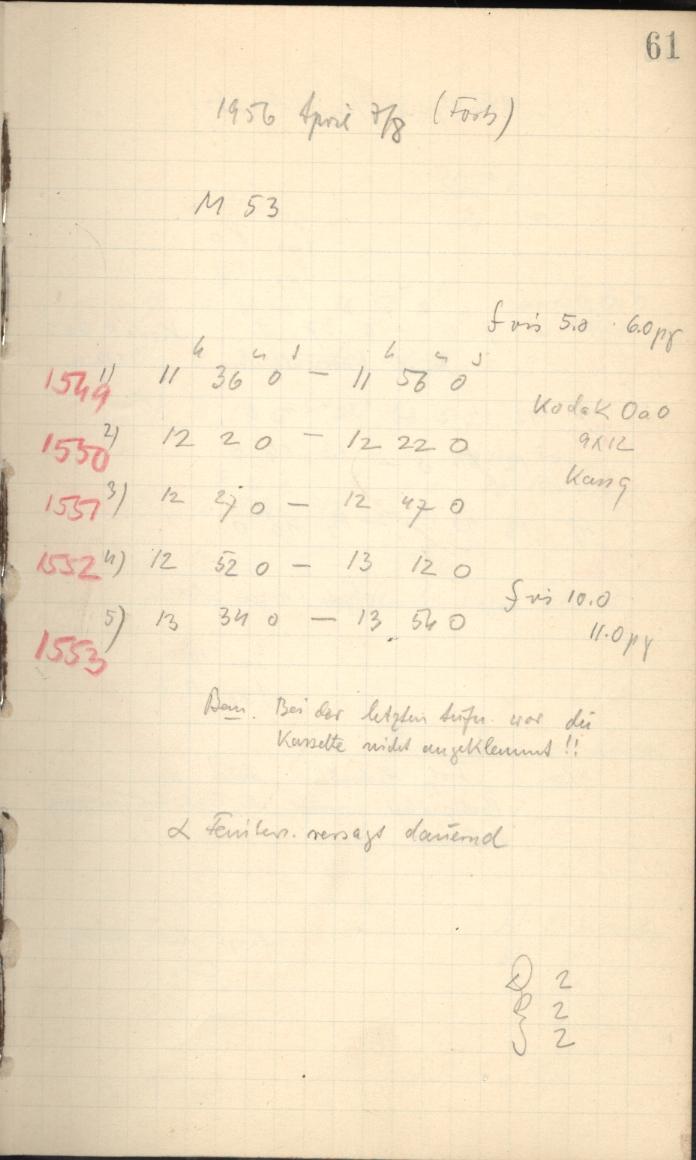 61
1956 April 7/8 (Forts)
M 53
f vis 5.0 6.0 pg
1549 1) 11 h 36 m 0 s — 11 h 56 m 0 s
Kodak 0a0
1550 2) 12 2 0 — 12 22 0
9x12
Kass 9
1551 3) 12 27 0 — 12 47 0
1552 4) 12 52 0 — 13 12 0
f vis 10.0
1553 5) 13 34 0 — 13 54 0
11.0 pg
Bem. Bei der letzten Aufn. war die
Kassette nicht angeklemmt !!
α Feinbew. versagt dauernd
2
2
2